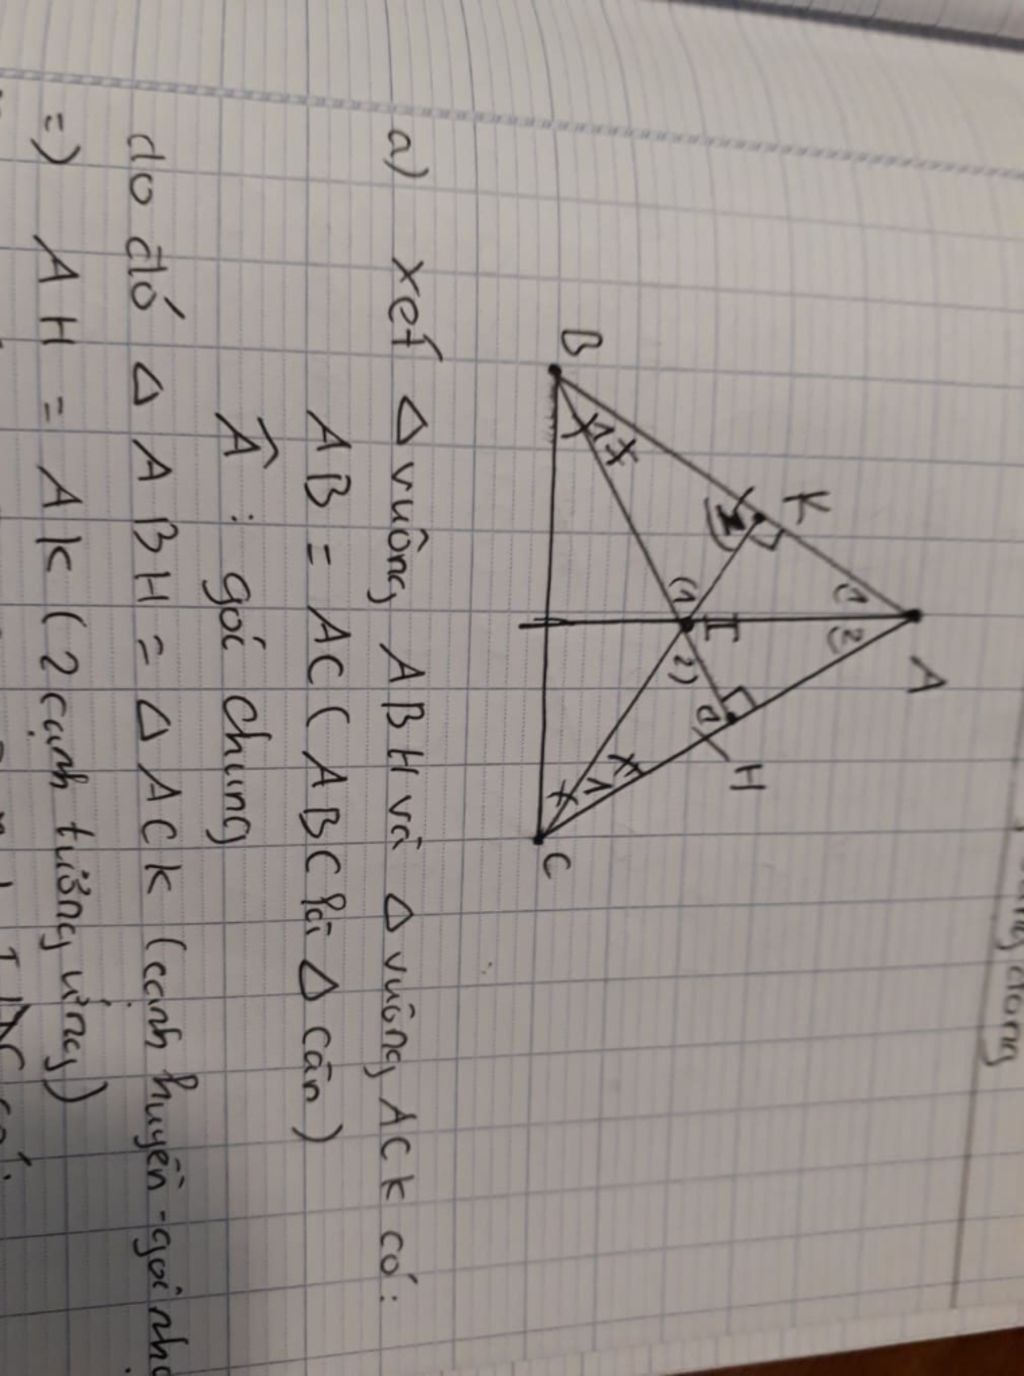 A
K
H
I
B
C
(1
(2
(1
2)
1
1
a) xét Δ vuông ABH và Δ vuông ACK có:
AB = AC (ABC là Δ cân)
Â : gói chung
do đó Δ ABH = Δ ACK (cạnh huyền - gói nhọ
=) AH = AK (2 cạnh tướng ứng)